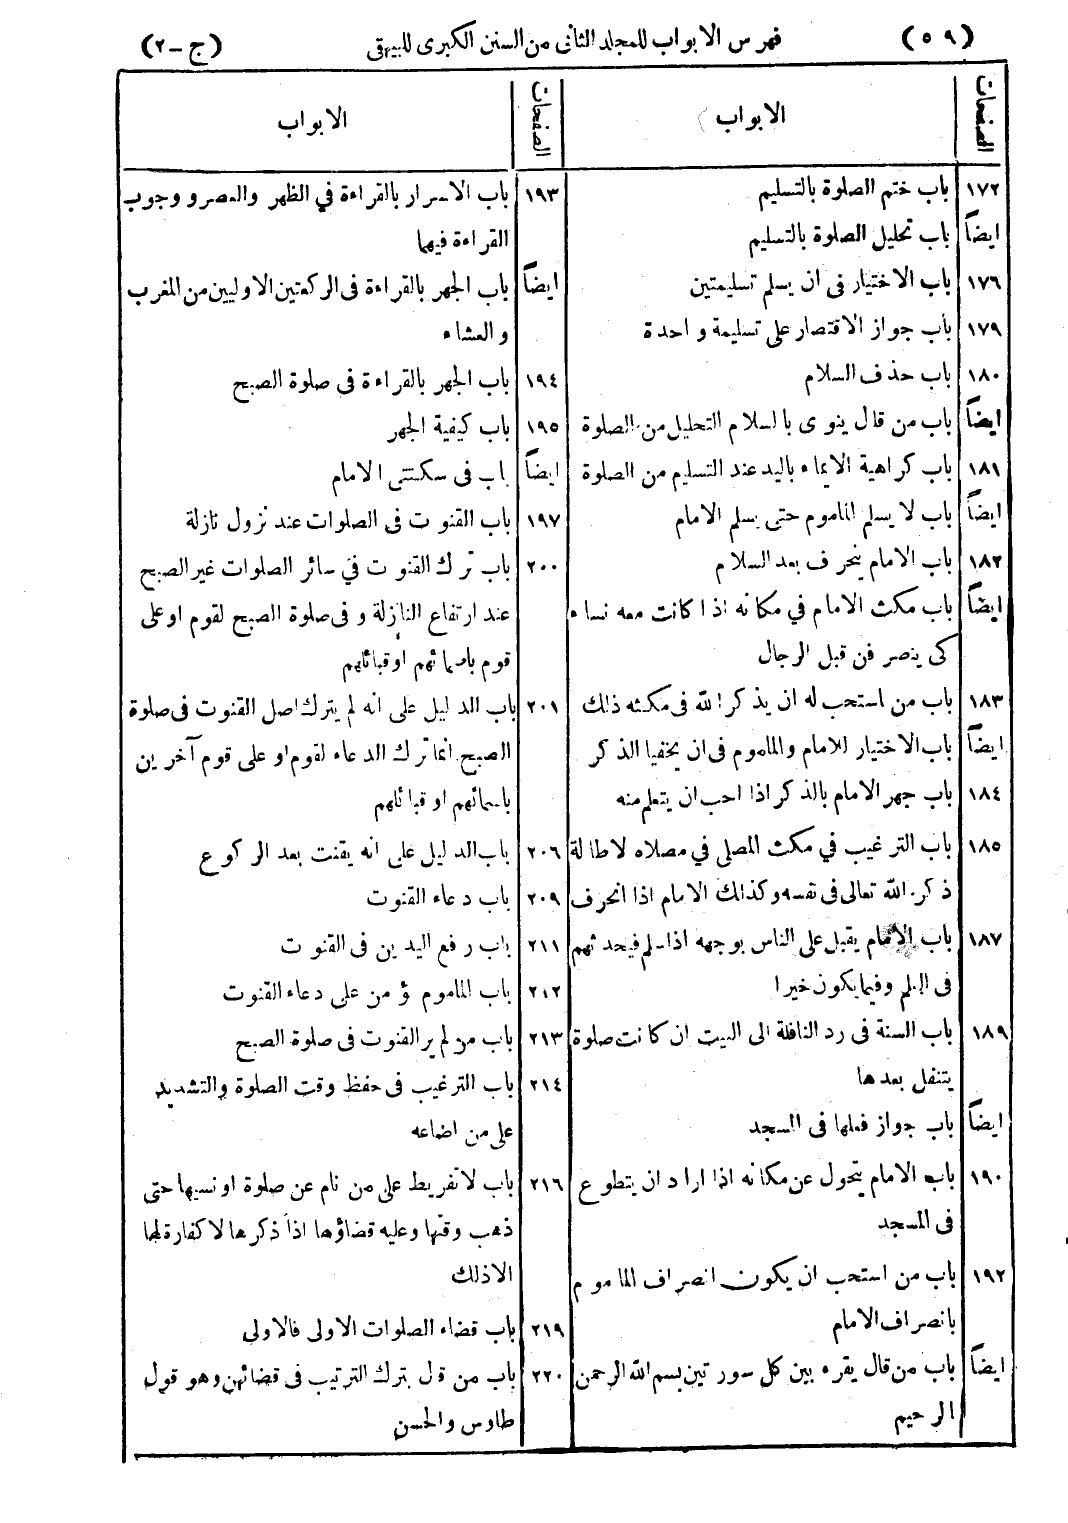 (٥٩) فهرس الابواب للمجلد الثانى من السنن الكبرى للبيهقى (ج-٢)
الصفحات الابواب
١٧٢ باب ختم الصلوة بالتسليم
ايضاً باب تحليل الصلوة بالتسليم
١٧٦ باب الاختيار فى ان يسلم تسليمتين
١٧٩ باب جواز الاقتصار على تسليمة واحدة
١٨٠ باب حذف السلام
ايضاً باب من قال ينوى بالسلام التحليل من الصلوة
١٨١ باب كراهية الايماء باليد عند التسليم من الصلوة
ايضاً باب لا يسلم الماموم حتى يسلم الامام
١٨٢ باب الامام ينحرف بعد السلام
ايضاً باب مكث الامام في مكانه اذا كانت معه نساء
كى ينصرفن قبل الرجال
١٨٣ باب من استحب له ان يذكر الله فى مكثه ذلك
ايضاً باب الاختيار للامام والماموم فى ان يخفيا الذكر
١٨٤ باب جهر الامام بالذكر اذا احب ان يتعلم منه
١٨٥ باب الترغيب في مكث المصلى في مصلاه لاطالة
ذكر الله تعالى فى نفسه وكذلك الامام اذا انحرف
١٨٧ باب الامام يقبل على الناس بوجهه اذا سلم فيحدثهم
فى العلم وفيما يكون خيرا
١٨٩ باب السنة فى رد النافلة الى البيت ان كانت صلوة
يتنفل بعدها
ايضاً باب جواز فعلها فى المسجد
١٩٠ باب الامام يتحول عن مكانه اذا اراد ان يتطوع
فى المسجد
١٩٢ باب من استحب ان يكون انصراف الماموم
بانصراف الامام
ايضاً باب من قال يقرء بين كل سورتين بسم الله الرحمن
الرحيم
الصفحات الابواب
١٩٣ باب الاسرار بالقراءة في الظهر والعصر ووجوب
القراءة فيهما
ايضاً باب الجهر بالقراءة فى الركعتين الاوليين من المغرب
والعشاء
١٩٤ باب الجهر بالقراءة فى صلوة الصبح
١٩٥ باب كيفية الجهر
ايضاً باب فى سكتتى الامام
١٩٧ باب القنوت فى الصلوات عند نزول نازلة
٢٠٠ باب ترك القنوت في سائر الصلوات غير الصبح
عند ارتفاع النازلة وفى صلوة الصبح لقوم او على
قوم باسمائهم او قبائلهم
٢٠١ باب الدليل على انه لم يترك اصل القنوت فى صلوة
الصبح انما ترك الدعاء لقوم او على قوم آخرين
باسمائهم او قبائلهم
٢٠٦ باب الدليل على انه يقنت بعد الركوع
٢٠٩ باب دعاء القنوت
٢١١ باب رفع اليدين فى القنوت
٢١٢ باب الماموم يؤمن على دعاء القنوت
٢١٣ باب من لم ير القنوت فى صلوة الصبح
٢١٤ باب الترغيب فى حفظ وقت الصلوة والتشديد
على من اضاعه
٢١٦ باب لا تفريط على من نام عن صلوة او نسيها حتى
ذهب وقتها وعليه قضاؤها اذا ذكرها لا كفارة لها
الا ذلك
٢١٩ باب قضاء الصلوات الاولى فالاولى
٢٢٠ باب من قال بترك الترتيب فى قضائهن وهو قول
طاوس والحسن